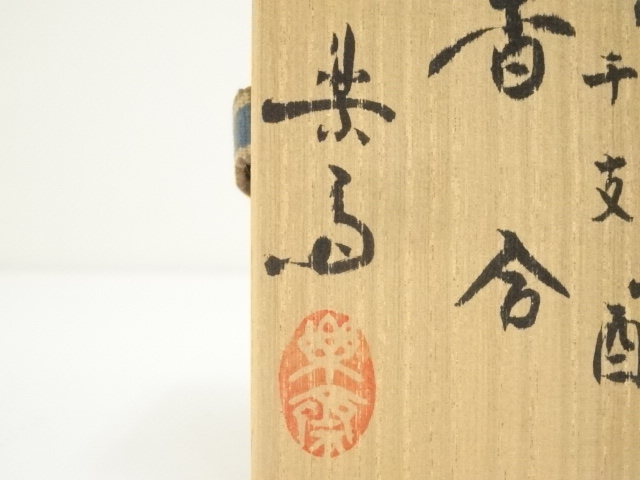 干支酉
香合
楽斎
楽斎